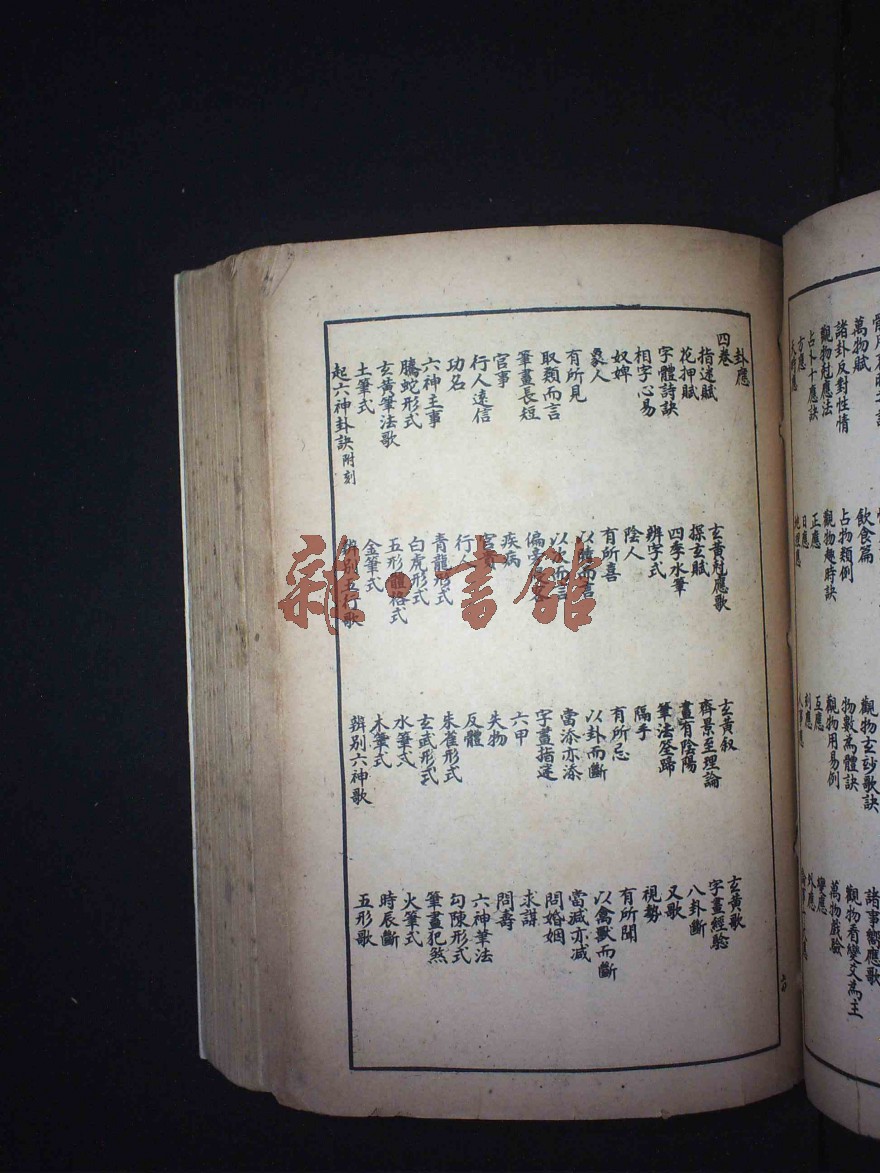 萬物賦 飲食篇 觀物玄妙歌訣 諸事響應歌
諸卦反對性情 占物類例 物數為體訣 觀物看變爻為主
觀物尅應法 觀物趣時訣 觀物用易例 萬物戲驗
占卜十應訣 正應 互應 變應
方應 日應 刻應 外應
天時應 地理應 人事應
卦應
四卷
指迷賦 玄黃尅應歌 玄黃叙 玄黃歌
花押賦 探玄賦 齊景至理論 字畫經驗
字體詩訣 四季水筆 畫有陰陽 八卦斷
相字心易 辨字式 筆法筌蹄 又歌
奴婢 陰人 隔手 視勢
人 有所喜 有所忌 有所聞
有所見 以隨而言 以卦而斷 以禽獸而斷
取類而言 以次而言 當添亦添 當減亦減
筆畫長短 偏旁 字畫指迷 問婚姻
官事 疾病 六甲 求謀
行人遠信 官貴 失物 問壽
功名 行人 反體 六神筆法
六神主事 青龍形式 朱雀形式 勾陳形式
螣蛇形式 白虎形式 玄武形式 筆畫犯煞
玄黃筆法歌 五形體格式 水筆式 火筆式
土筆式 金筆式 木筆式 時辰斷
起六神卦訣附刻 辨別五行歌 辨別六神歌 五形歌
雜·書館